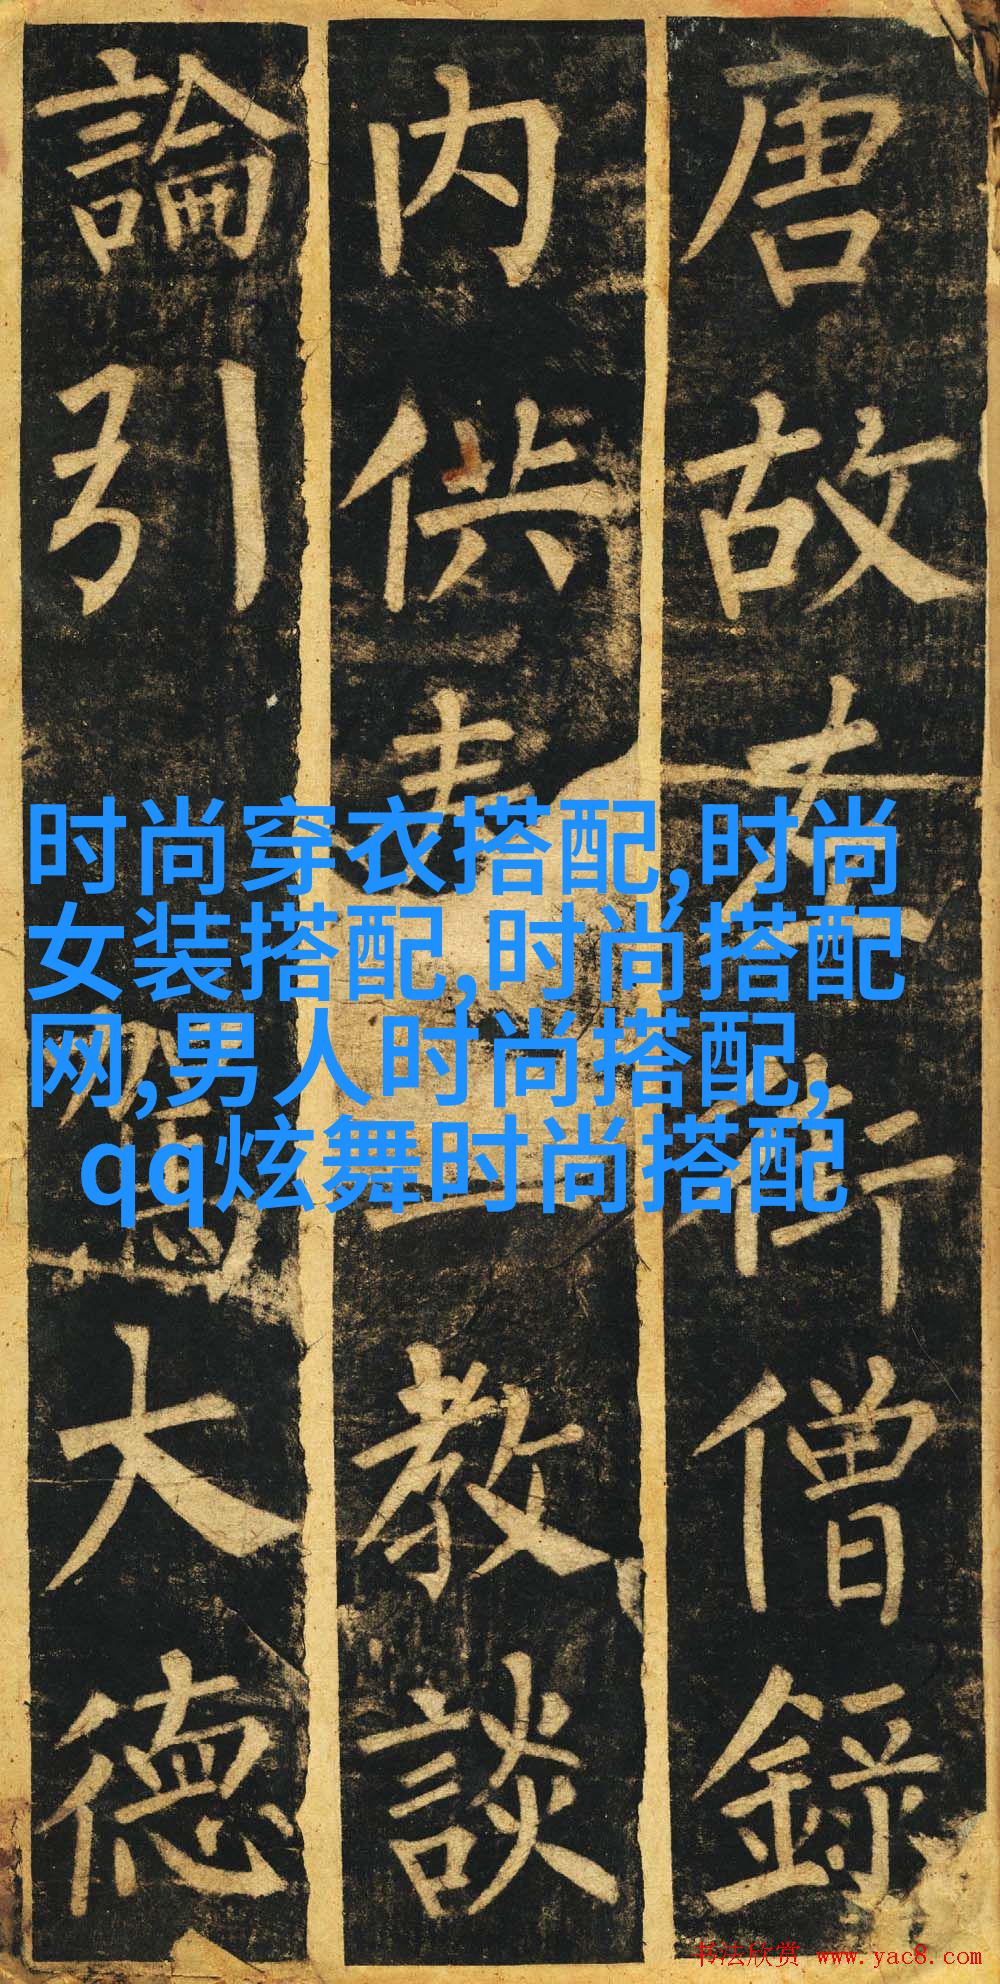 唐故左街僧錄
内供奉教談
論引大德
时尚穿衣搭配,时尚
女装搭配,时尚搭配
网,男人时尚搭配,
qq炫舞时尚搭配
书法欣赏 www.yac8.com